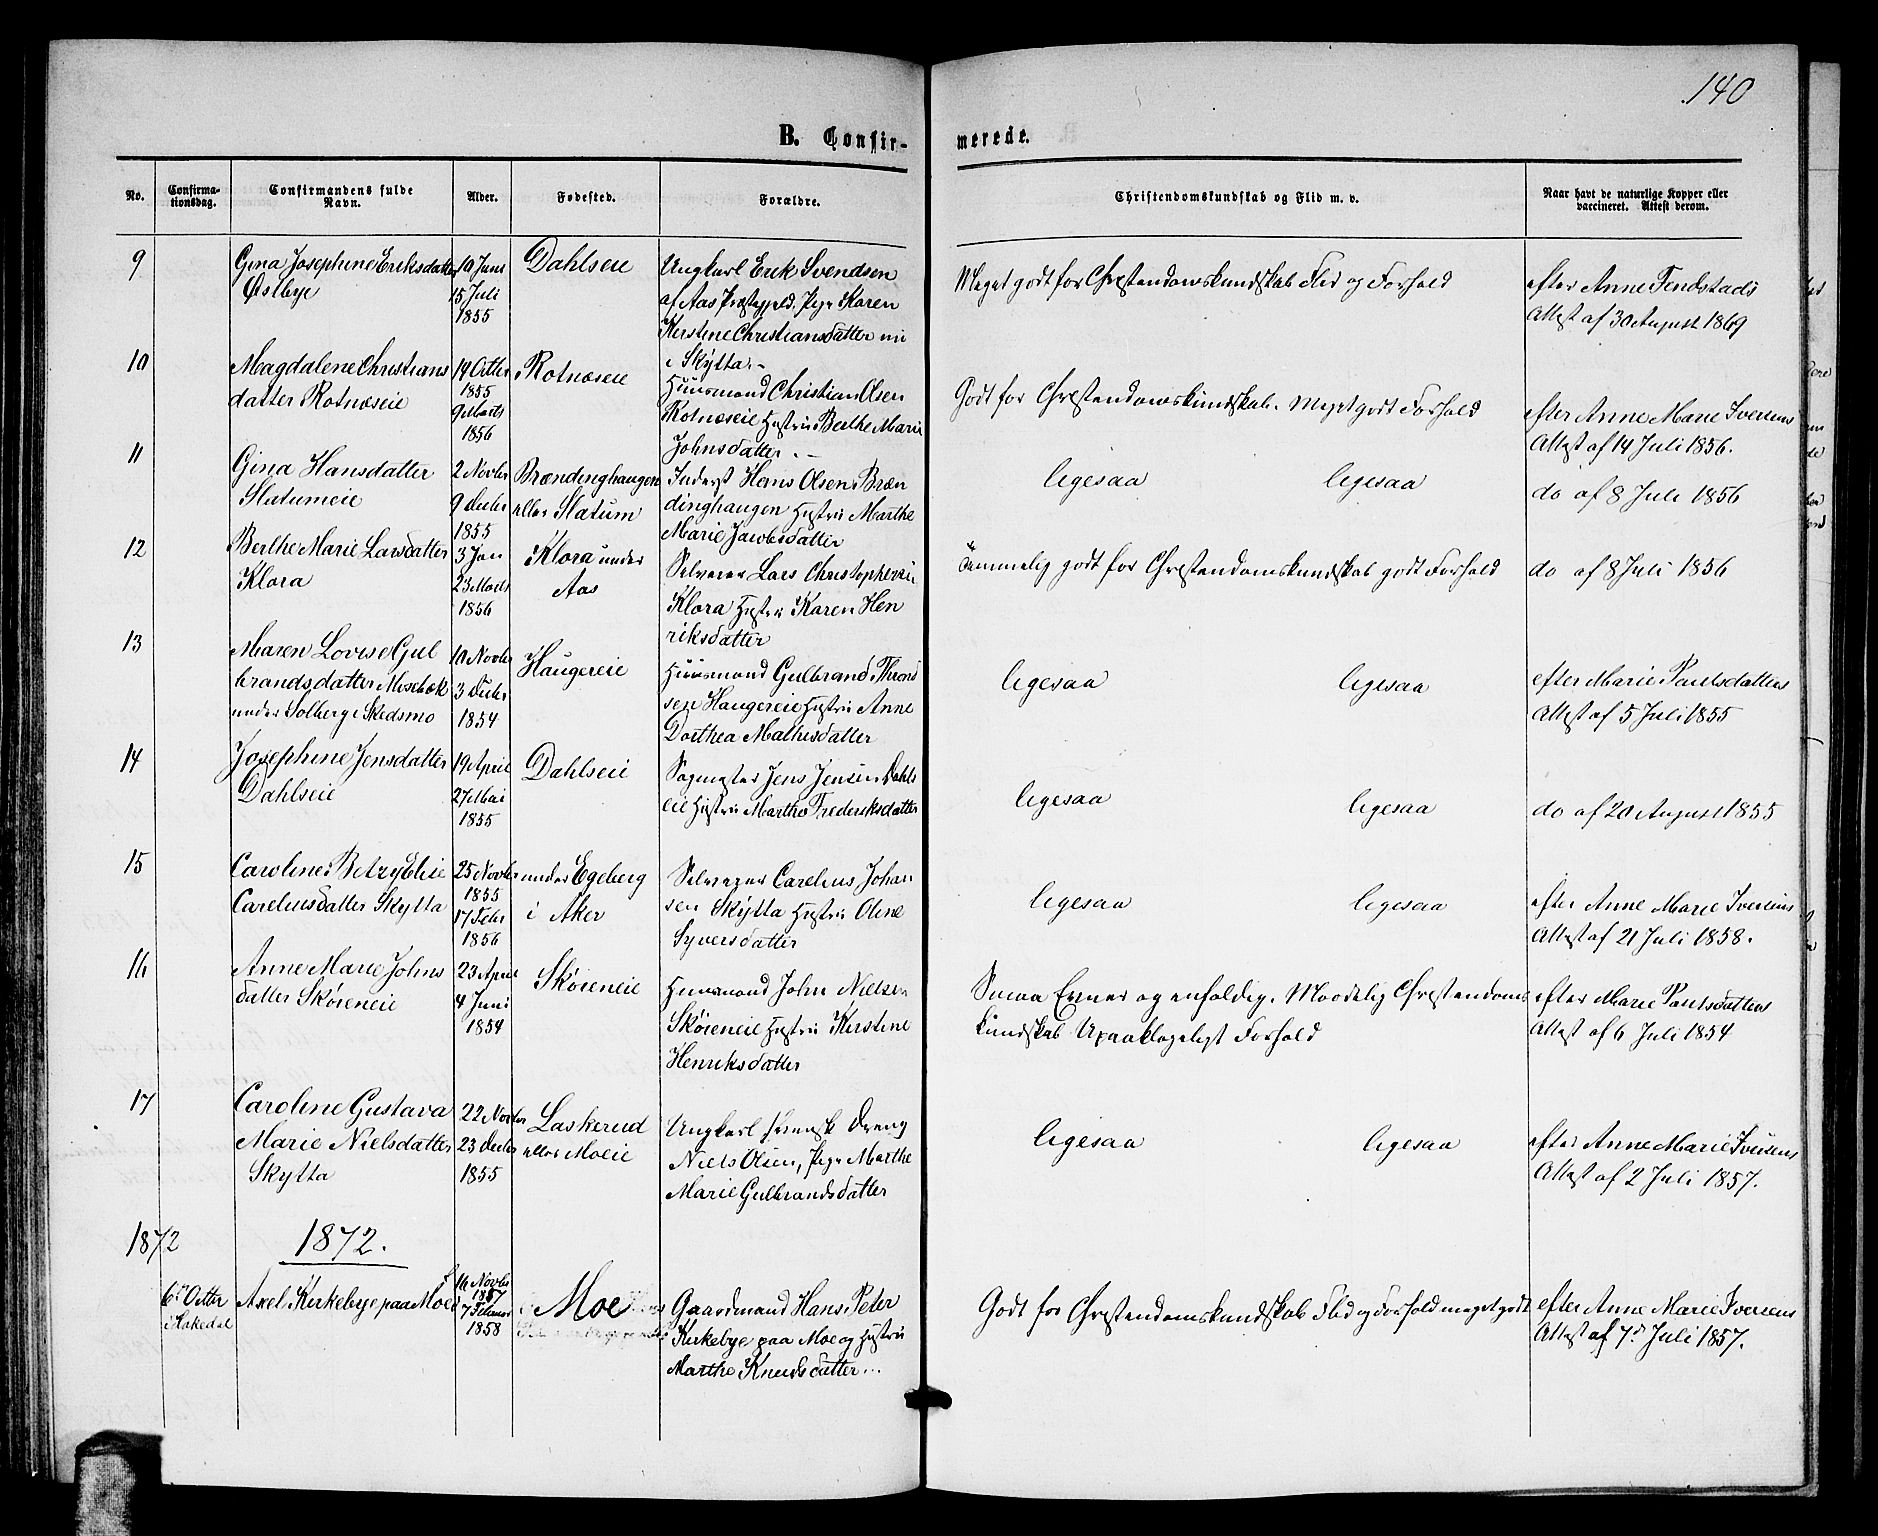 140
B. Confir-
merede.
No.
Confirma-
tionsdag.
Confirmandens fulde
Navn.
Alder.
Fødested.
Forældre.
Christendomskundskab og Flid m. v.
Naar havt de naturlige Kopper eller
vaccineret. Attest derom.
9
Gina Josephine Eriksdatter
Østbye
10 Juni
15 Juli
1855
Dahlseie
Ungkarl Erik Svendsen
af Aas Præstegjeld. Pige Karen
Kirstine Christiansdatter nu
i Skytta.-
Meget godt for Christendomskundskab Flid og Forhold
efter Anne Fendstads
Attest af 30 August 1869
10
Magdalene Christians
datter Rotnæseie
14 Octbr
1855
9 Marts
1856
Rotnæseie
Huusmand Christian Olsen
Rotnæseie Hustru Berthe Marie
Johnsdatter.-
Godt for Christendomskundskab. Meget godt Forhold
efter Anne Marie Iversens
Attest af 14 Juli 1856.
11
Gina Hansdatter
Slatumeie
2 Novbr
9 Decbr
1855
Brændinghaugen
eller Slatum
Inderst Hans Olsen Bræn
dinghaugen Hustru Marthe
Marie Jacobsdatter
ligesaa
ligesaa
do af 8 Juli 1856
12
Berthe Marie Larsdatter
Klora
3 Jan
23 Marts
1856
Klora under
Aas
Selveier Lars Christophersen
Klora Hustru Karen Hen
riksdatter
Temmelig godt for Christendomskundskab godt Forhold
do af 8 Juli 1856
13
Maren Lovise Gul
brandsdatter Misebæk
under Solberg i Skedsmo
10 Novbr
3 Decbr
1854
Haugereie
Huusmand Gulbrand Thrond
sen Haugereie Hustru Anne
Dorthea Mathisdatter
ligesaa
ligesaa
efter Marie Paulsdatters
Attest af 5 Juli 1855
14
Josephine Jensdatter
Dahlseie
19 April
27 Mai
1855
Dahlseie
Sagmester Jens Jensen Dahls
eie Hustru Marthe Frederiksdatter
ligesaa
ligesaa
do af 20 August 1855
15
Caroline Betzy Elise
Careliusdatter Skytta
25 Novbr
1855
17 Febr
1856
under Egeberg
i Aker
Selveier Carelius Johan
sen Skytta Hustru Oline
Syversdatter
ligesaa
ligesaa
efter Anne Marie Iversens
Attest af 21 Juli 1858.
16
Anne Marie Johns
datter Skøieneie
23 April
4 Juni
1854
Skøieneie
Huusmand John Nielsen
Skøieneie Hustru Kirstine
Henriksdatter
Smaa Evner og enfoldig. Maadelig Christendoms
kundskab Upaaklageligt Forhold
efter Marie Paulsdatters
Attest af 6 Juli 1854
17
Caroline Gustava
Marie Nielsdatter
Skytta
22 Novbr
23 Decbr
1855
Laskerud
eller Moeie
Ungkarl svensk Dreng
Niels Olsen, Pige Marthe
Marie Gulbrandsdatter
ligesaa
ligesaa
efter Anne Marie Iversens
Attest af 2 Juli 1857.
1872
1872.
6te Octbr
i Hakedal
Axel Kirkebye paa Moe
16 Novbr
1857
7 Februar
1858
Moe
Gaardmand Hans Peter
Kirkebye paa Moe og Hustru
Marthe Knudsdatter...
Godt for Christendomskundskab Flid og Forhold meget godt
efter Anne Marie Iversens
Attest af 7de Juli 1857.